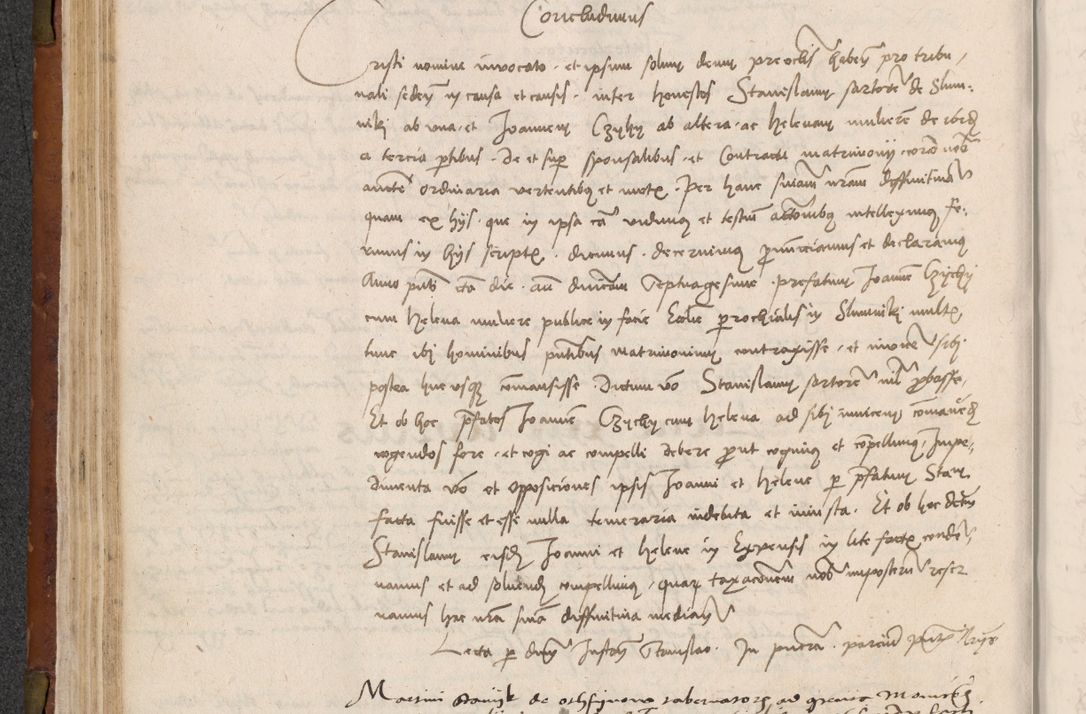 Concludimus
Cristi nomine invocato et ipsum solum deum pre oclis habeń pro tribu-
nali sedeń in causa et causis inter honestos Stanislaum sartorē de Slum-
niki ab una et Joannem Czyhy ab altera ac Helenam mulierē de ibideḿ
a tercia ptibus. De et sup sponsalibus et Contractu matrimonij corā nob
aucte ordinaria vertentibus et motis. Per hanc sniam nram diffinitivā
quam ex hijs que in ipsa cā vidimus et testium actonibus intelleximus fe-
rimus in hijs scriptis dicimus decernimus pronunciamus et declaramus
Anno pnti die añ dnicam Septuagesime prefatum Joannē Czychy
cum Helena muliere publice in facie Ecclie parochialis in Slumniki multis
tunc ibi hominibus pntibus matrimonium contraxisse et invicē sibi
postea huc usque comansisse. Dictum vo Stanislaum sartorē nil probasse
Et ob hoc pfatos Joannē Czychy cum Helena ad sibi invicem comanēd
cogendos fore et cogi ac compelli debere prout cogimus et compellimus. Impe-
dimenta vo et opposiciones ipsis Joanni et Helene per pfatum Stań
facta fuisse et esse nulla temeraria indebita et iniusta. Et ob hoc dctum
Stanislaum eisdē Joanni et Helene in Expensis in lite factis conde-
namus et ad solvend compellimus, quarum taxaconem nob imposterum reser
vamus hac nra snia diffinitiva mediań
Lecta p dnum Stanislao. In pncia
Martini de